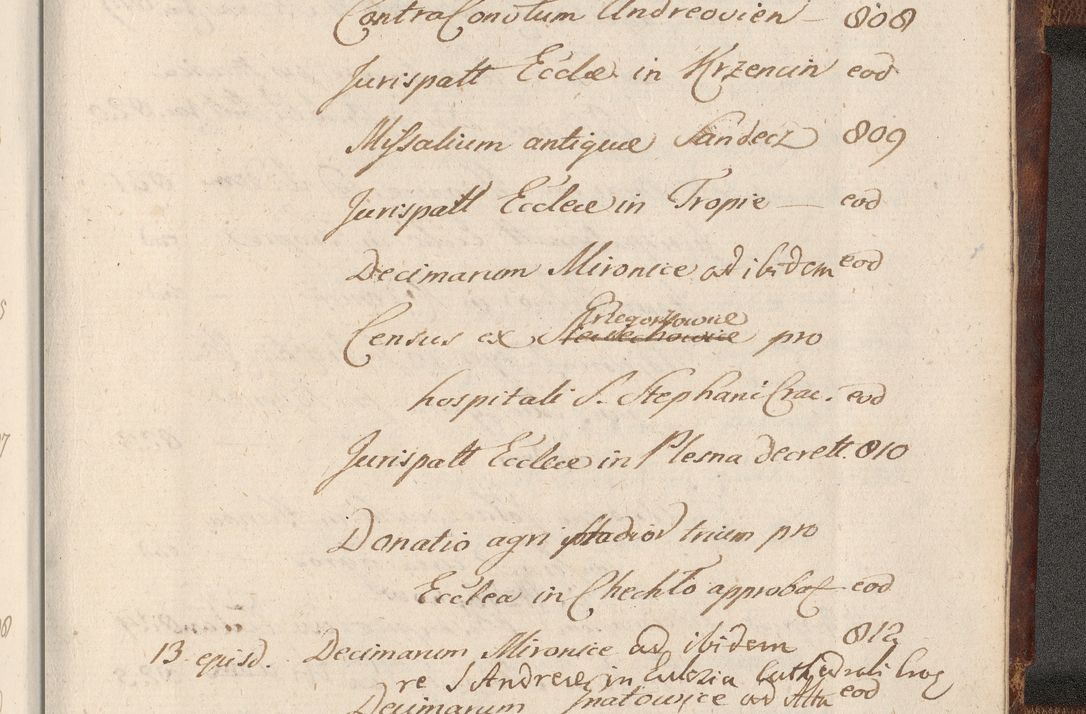 Contra Conotum Andreovien 808
Jurispatt Ecclæ in Krzencin eod
Missalium antiquæ Sandecz 809
Jurispatt Ecclææ in Tropie eod
Decimarum Mironice ad ibidem eod
Grzegorzowice
Census ex pro
hospitali S. Stephani Crac. eod
Jurispatt Ecclææ in Plesna decrett. 810
Donatio agri stadior trium pro
Ecclea in Chechło approbat eod
13 episd. Decimarum Mironice ad ibidem 812
re S Andreæ in Cathedrali Crac
Decimarum ad Alta eod
5
7
8